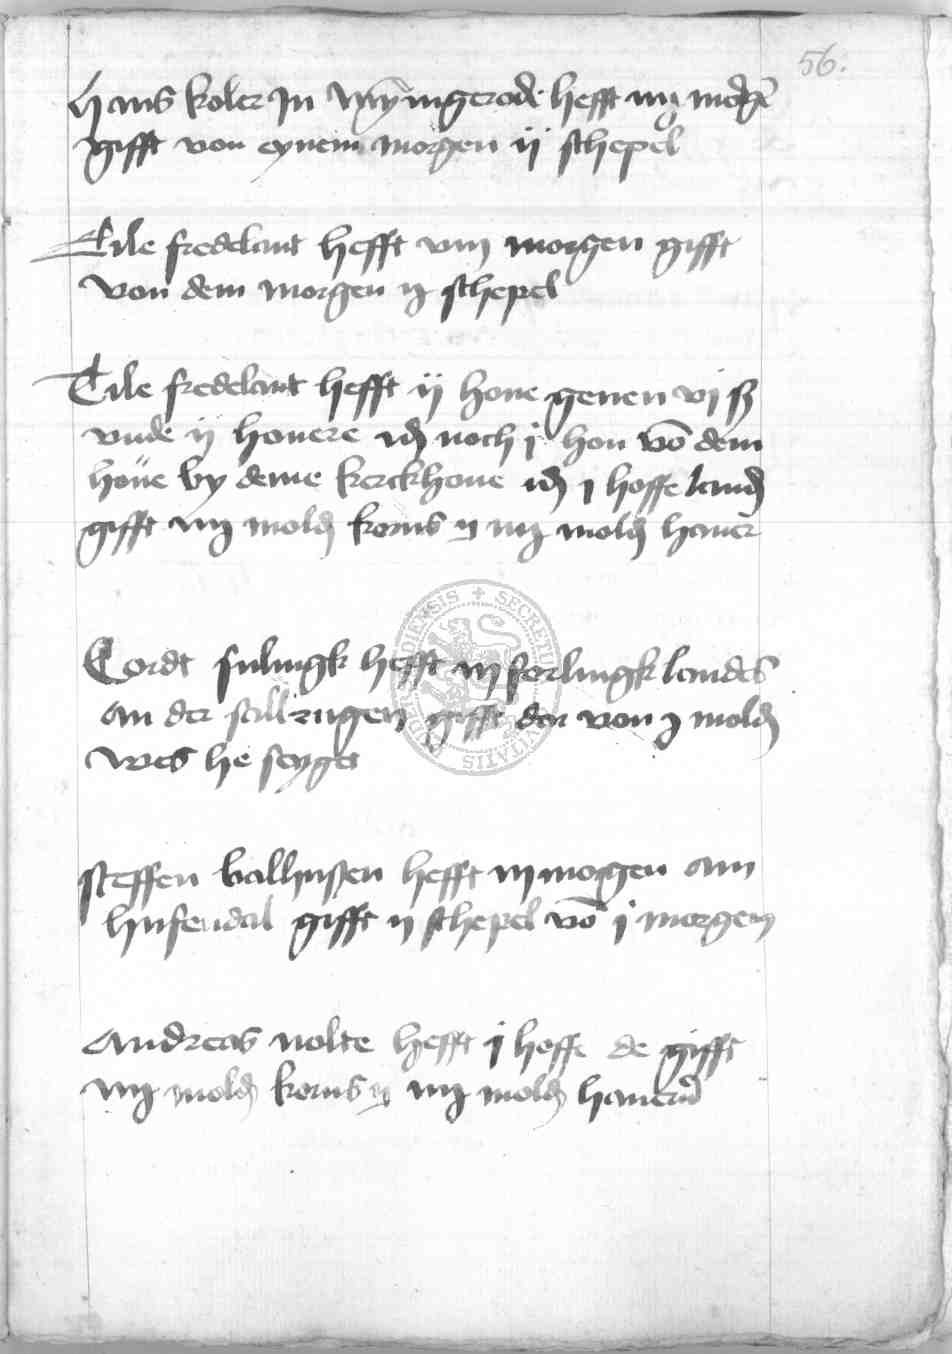 56.
Hans koler Jn Wyngerode hefft iiij morgē
gifft von eynem morgen ij schepel
Tile fredelant hefft viij morgen gifft
von dem morgen ij schepel
Tile fredelant hefft ij houe geuen vj ß
vnde ij honere noch j hon vō dem
houe by deme kerckhoue j hoffe landes
gifft iiij mold korns iiij mold hauer
Cordt sulingk hefft iij forlingk landes
an der gifft dar von j mold
wes he seyget
steffen balhusen hefft iij morgen am
husendal gifft ij schepel vō j morgen
Andreas nolte hefft j hoffe de gifft
iiij mold korns iiij mold hauern
SECRETU CIVITATIS